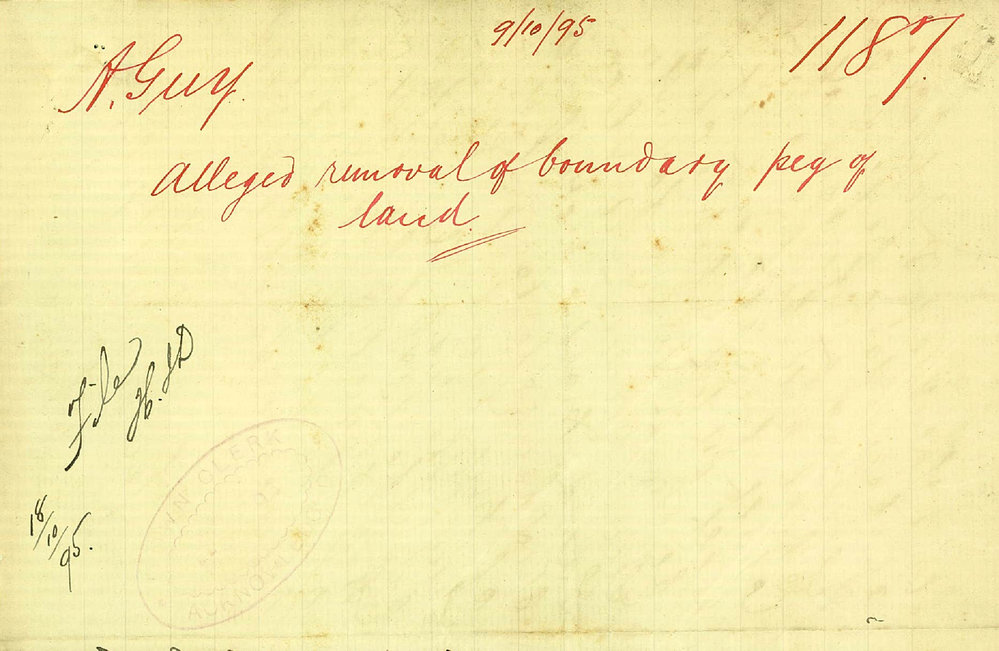 9/10/95
1187
A. Guy.
Alleged removal of boundary peg of
land
File
H. JD
18/10/95.
IN CLERK